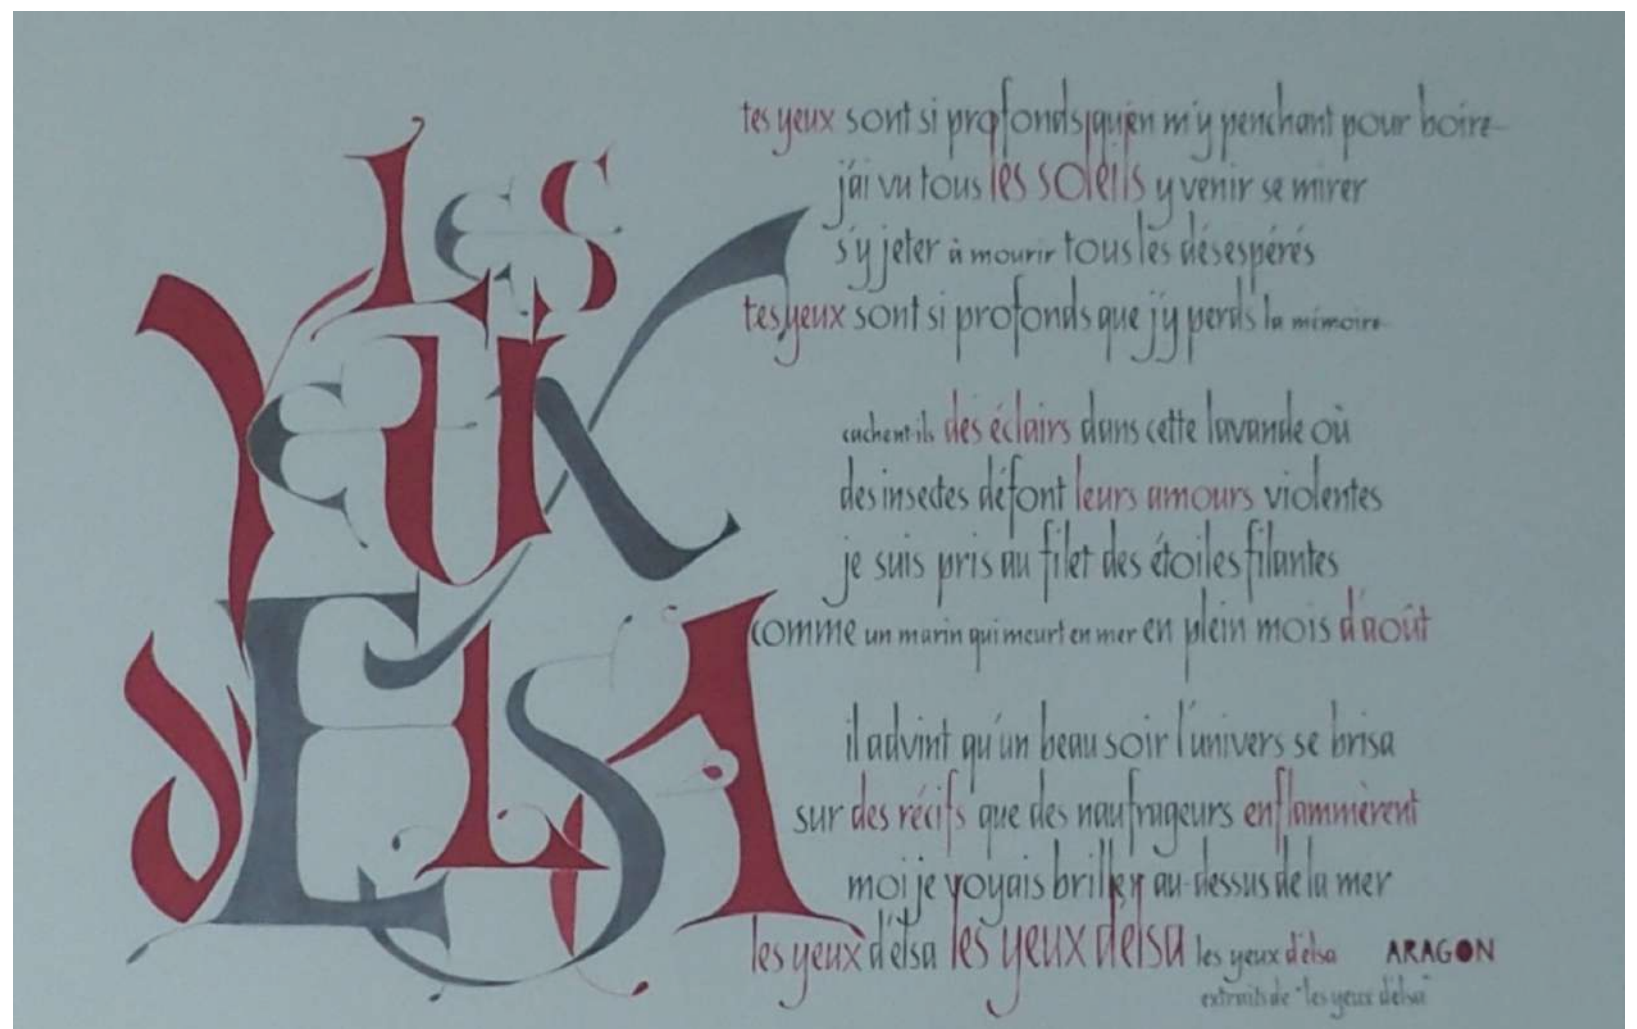 LES
YEUX
d'ELSA
tes yeux sont si profonds qu'en m'y penchant pour boire
j'ai vu tous les soleils y venir se mirer
s'y jeter à mourir tous les désespérés
tes yeux sont si profonds que j'y perds la mémoire
cachent-ils des éclairs dans cette lavande où
des insectes défont leurs amours violentes
je suis pris au filet des étoiles filantes
comme un marin qui meurt en mer en plein mois d'août
il advint qu'un beau soir l'univers se brisa
sur des récifs que des naufrageurs enflammèrent
moi je voyais briller au-dessus de la mer
les yeux d'elsa les yeux d'elsa les yeux d'elsa ARAGON
extraits de "les yeux d'elsa"